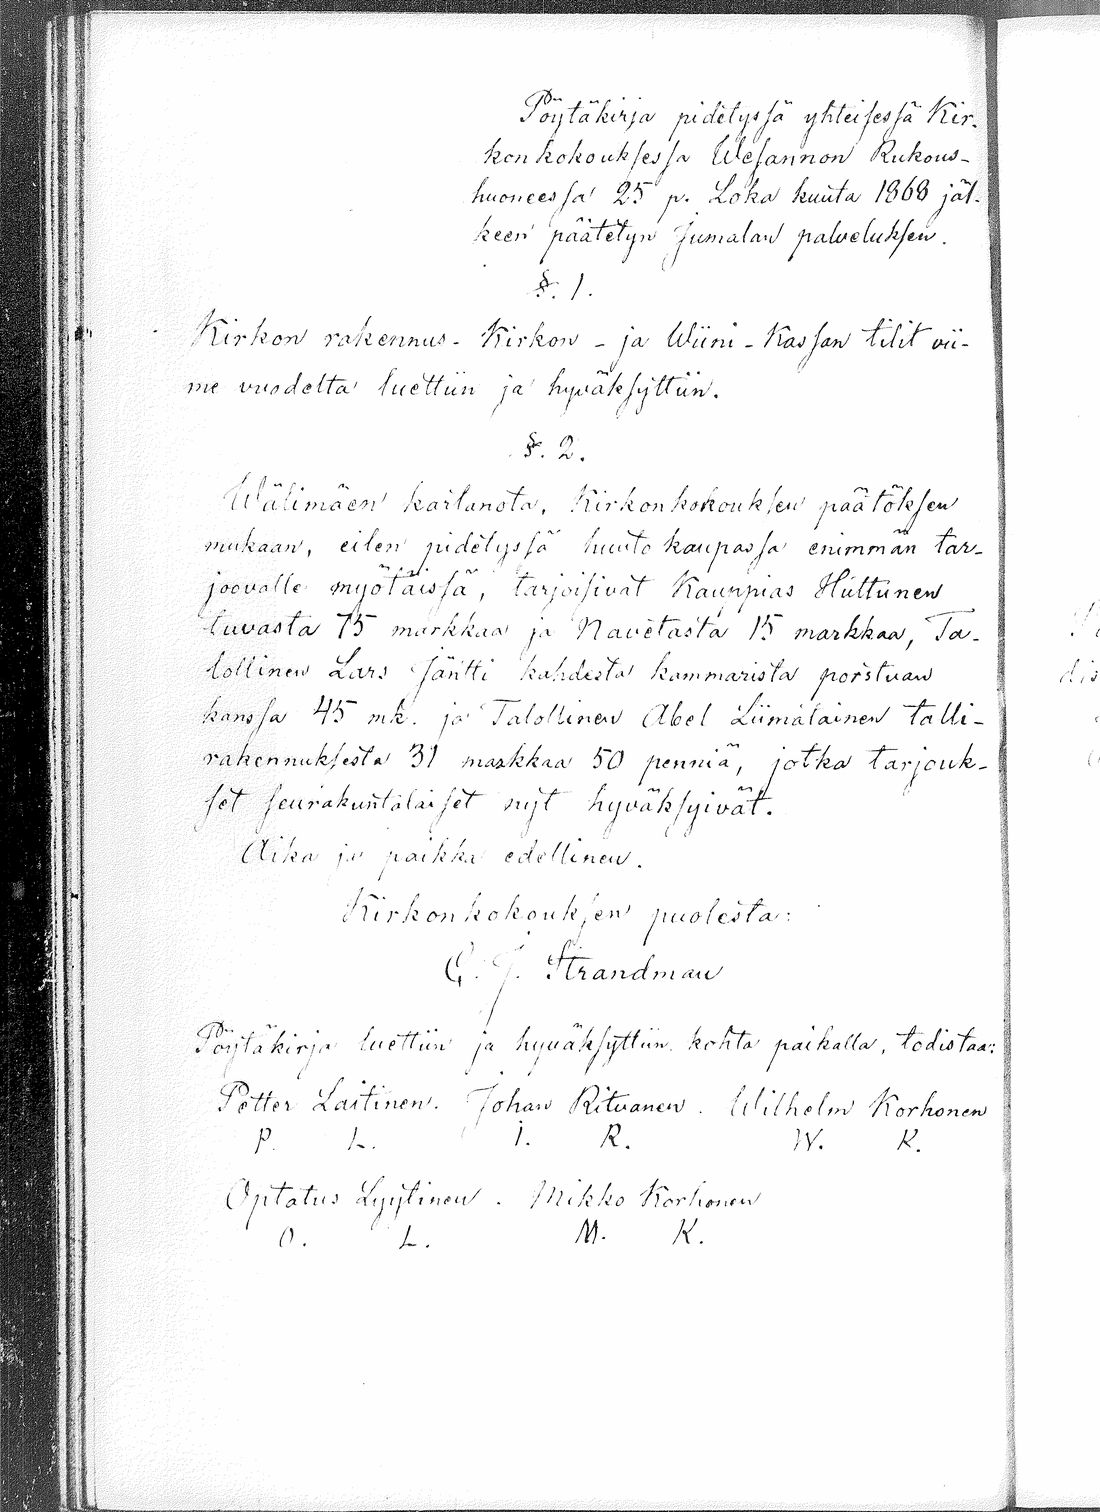 Pöytäkirja pidetyssä yhteisessä Kir-
konkokouksessa Wesannon Rukous-
huoneessa 25 p. Loka kuuta 1868 jäl-
keen päätetyn Jumalan palveluksen.
§. 1.
Kirkon rakennus- Kirkon- ja Wiini-Kassan tilit vii-
me vuodelta luettiin ja hyväksyttiin.
§. 2.
Wälimäen kartanota, Kirkonkokouksen päätöksen
mukaan, eilen pidetyssä huuto kaupassa enimmän tar-
joovalle myötäissä, tarjoisivat Kauppias Huttunen
tuvasta 75 markkaa ja Navetasta 15 markkaa, Ta-
lollinen Lars Jäntti kahdesta kammarista porstuan
kanssa 45 mk. ja Talollinen Abel Liimatainen talli-
rakennuksesta 31 markkaa 50 penniä, jotka tarjouk-
set seurakuntalaiset nyt hyväksyivät.
Aika ja paikka edellinen.
Kirkonkokouksen puolesta:
G. J. Strandman
Pöytäkirja luettiin ja hyväksyttiin kohta paikalla, todistaa:
Petter Laitinen. Johan Ritvanen. Wilhelm Korhonen
P. L. I. R. W. K.
Optatus Lyytinen. Mikko Korhonen
O. L. M. K.